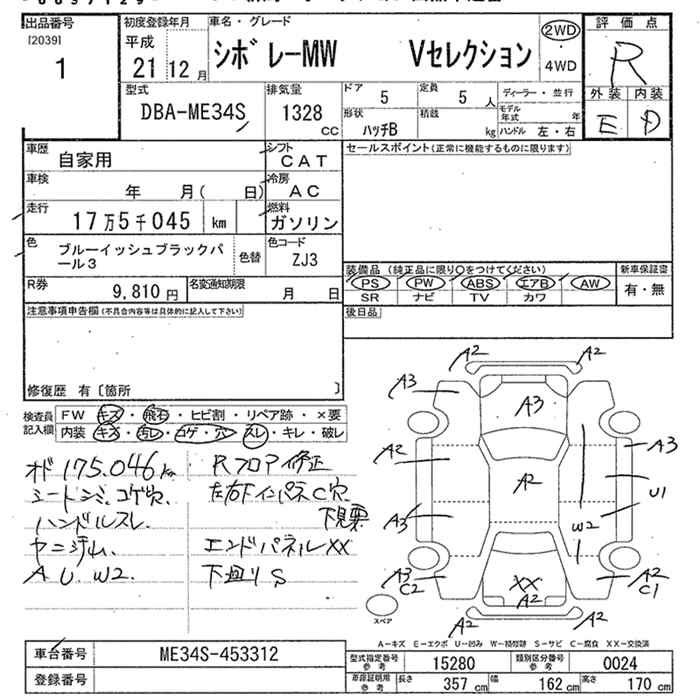 出品番号
[2039]
1
初度登録年月
平成
21 12月
車名・グレード
シボレーMW Vセレクション
2WD
4WD
評価点
R
外装 内装
E D
型式
DBA-ME34S
排気量
1328
CC
ドア
5
定員
5 人
形状
ハッチB
積載
kg
ディーラー・並行
モデル年式 年
ハンドル 左・右
車歴
自家用
シフト
CAT
車検
年 月( 日)
冷房
AC
走行
17万5千045 km
燃料
ガソリン
色
ブルーイッシュブラックパール3
色替
色コード
ZJ3
R券
9,810 円
名変通知期限
月 日
セールスポイント(正常に機能するものに限ります)
装備品 (純正品に限り○をつけてください)
PS PW ABS エアB AW
SR ナビ TV カワ
新車保証書
有・無
後日品
注意事項申告欄(不具合内容等は具体的に記入して下さい)
修復歴 有〔箇所 〕
検査員記入欄
FW キズ・飛石・ヒビ割・リペア跡・×要
内装 キズ・汚レ・コゲ・穴・スレ・キレ・破レ
オド 175.046km
シートシミ、コゲ穴、
ハンドルスレ.
ヤニジム.
A U. W2.
Rフロア修正
左右下インパネC穴
下見要
エンドパネルXX
下廻りS
A2 A2
A3 A3
A2 A2 A3
U1
A3 W2
A3 C2 XX A2 A2 C1
A2 A2
スペア
A-キズ E-エクボ U-凹み W-補修跡 S-サビ C-腐食 XX-交換済
車台番号
ME34S-453312
登録番号
型式指定番号 参考
15280
類別区分番号 参考
0024
車庫証明用 参考
長さ 357 cm 幅 162 cm 高さ 170 cm